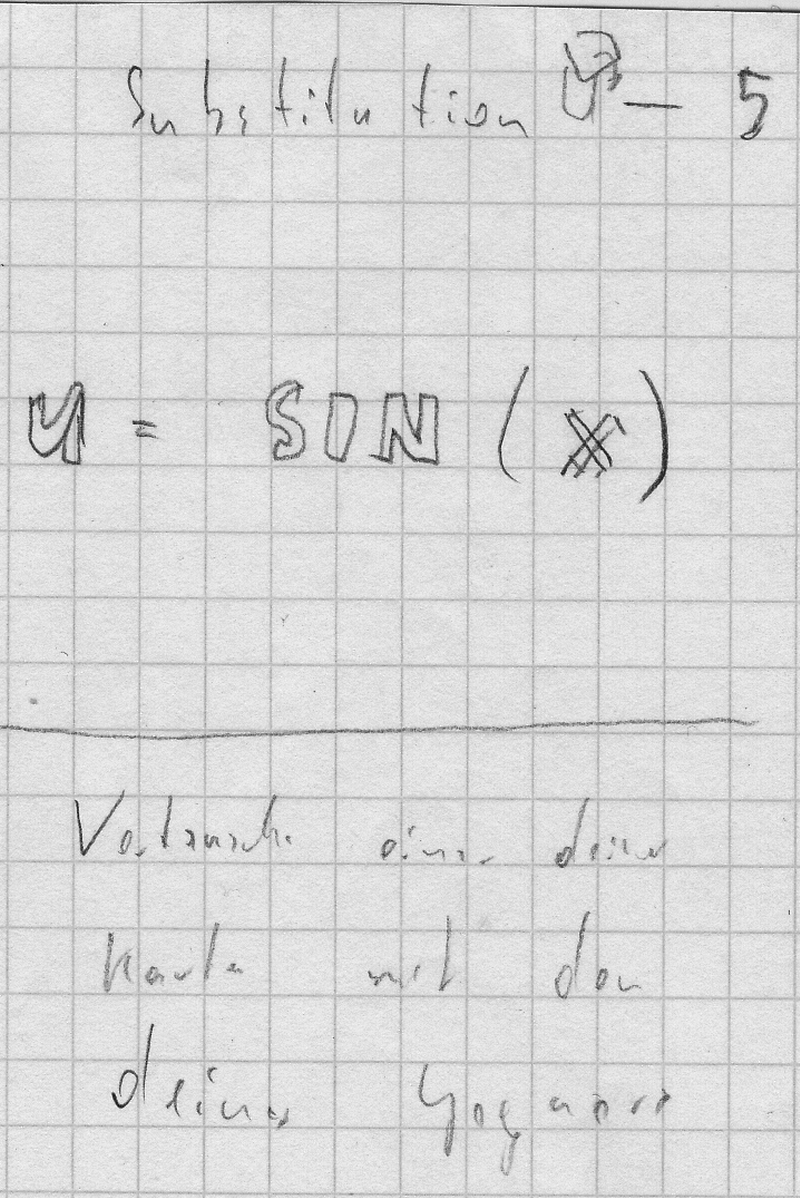 Substitution U — 5
u = SIN (X)
Vertausche eine deiner
Karte mit den
deines Gegners